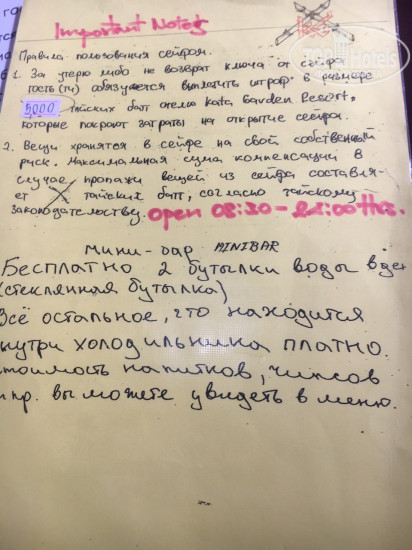 TopHotels
Important Notes
Правила пользования сейфом.
1. За утерю либо не возврат ключа от сейфа
гость(ти) обязуется выплатить штраф в размере
5000 тайских батт отелю Kata Garden Resort,
которые покроют затраты на открытие сейфа.
2. Вещи хранятся в сейфе на свой собственный
риск. Максимальная сума компенсации в
случае пропажи вещей из сейфа составля-
ет тайских батт, согласно тайскому
законодательству. Open 08:30 - 22:00 Hrs.
Мини-бар MINIBAR
Бесплатно 2 бутылки воды в де
(стеклянная бутылка)
Всё остальное, что находится
внутри холодильника платно.
тоимость напитков, чипсов
и пр. вы можете увидеть в меню.